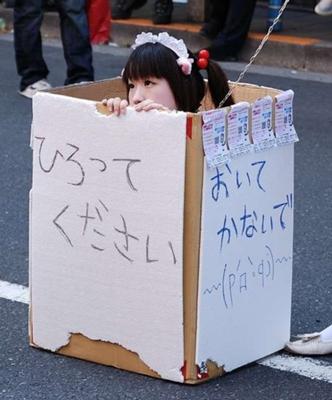 ひろって
ください
おいて
かないで
〜(p´д`q)〜